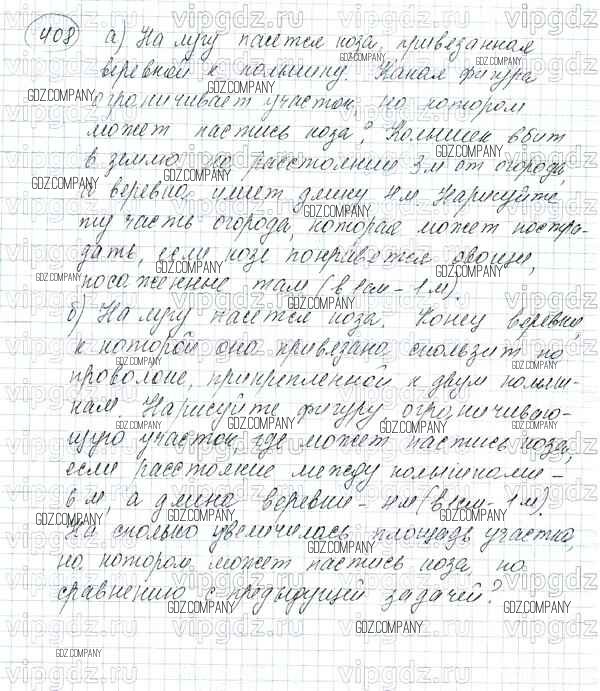 408 а) На лугу пасется коза, привязанная
веревкой к колышку. Какая фигура
ограничивает участок, на котором
может пастись коза? Колышек вбит
в землю на расстоянии 3 м от огорода,
а веревка имеет длину 4 м. Нарисуйте
ту часть огорода, которая может постра-
дать, если козе понравятся овощи,
посаженные там (в 1см - 1 м).
б) На лугу пасется коза. Конец веревки,
к которой она привязана скользит по
проволоке, прикрепленной к двум колыш-
кам. Нарисуйте фигуру ограничиваю-
щую участок, где может пастись коза,
если расстояние между колышками -
6 м, а длина веревки - 4м (в 1см - 1 м).
На сколько увеличилась площадь участка,
на котором может пастись коза, по
сравнению с предыдущей задачей?